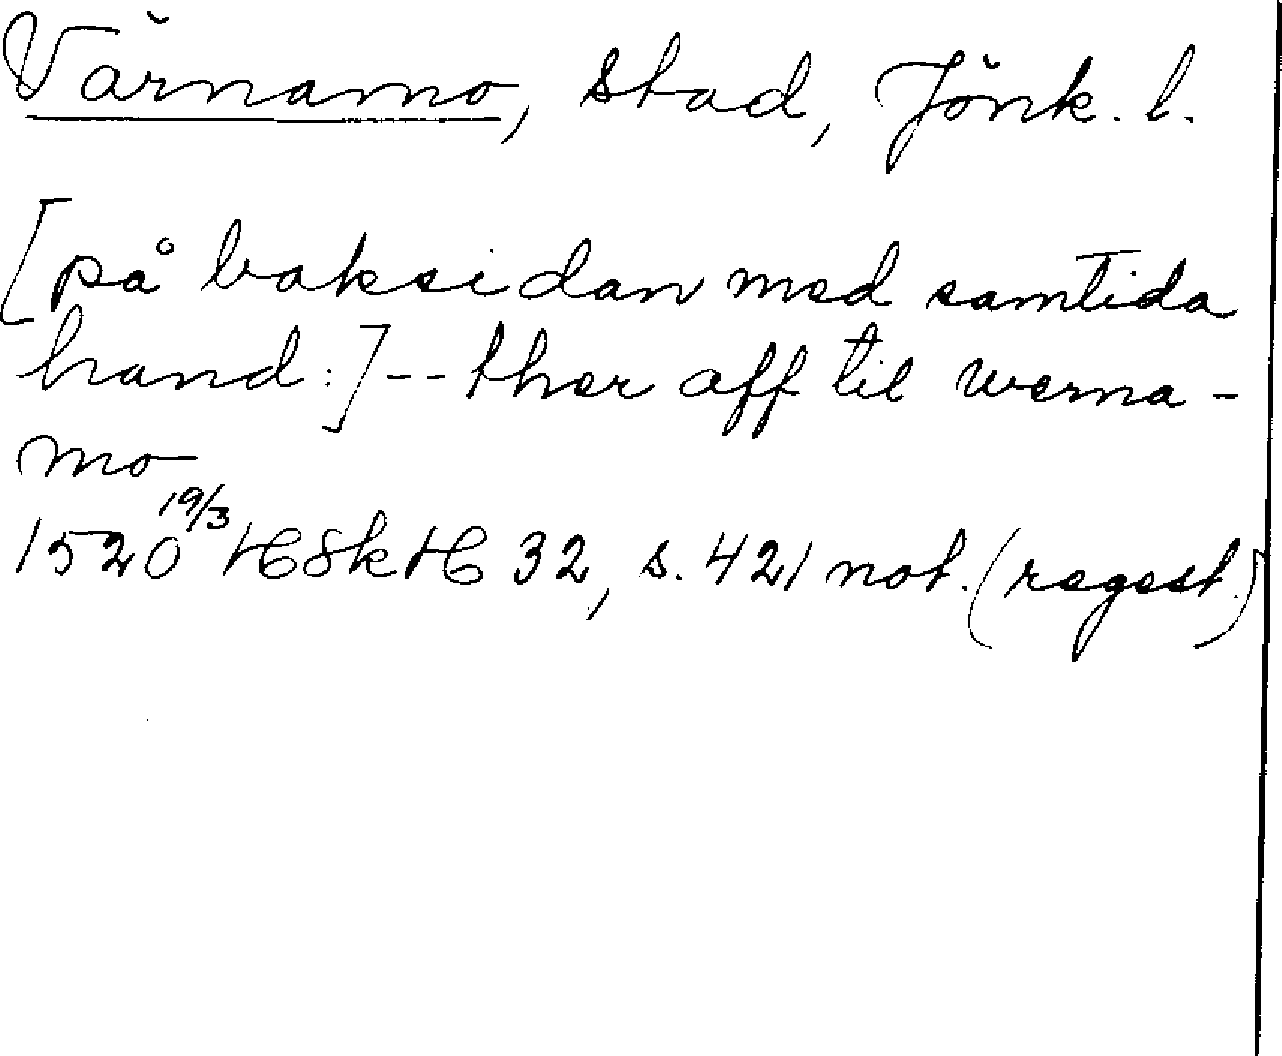 Värnamo, stad, Jönk. l.
[på baksidan med samtida
hand:]-- ther aff til werna-
mo
1520 19/3 HSkH 32, s. 421 not. (regest.)